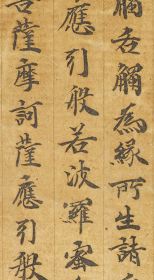 觸舌觸為緣所生諸
應引般若波羅蜜
菩薩摩訶薩應引般